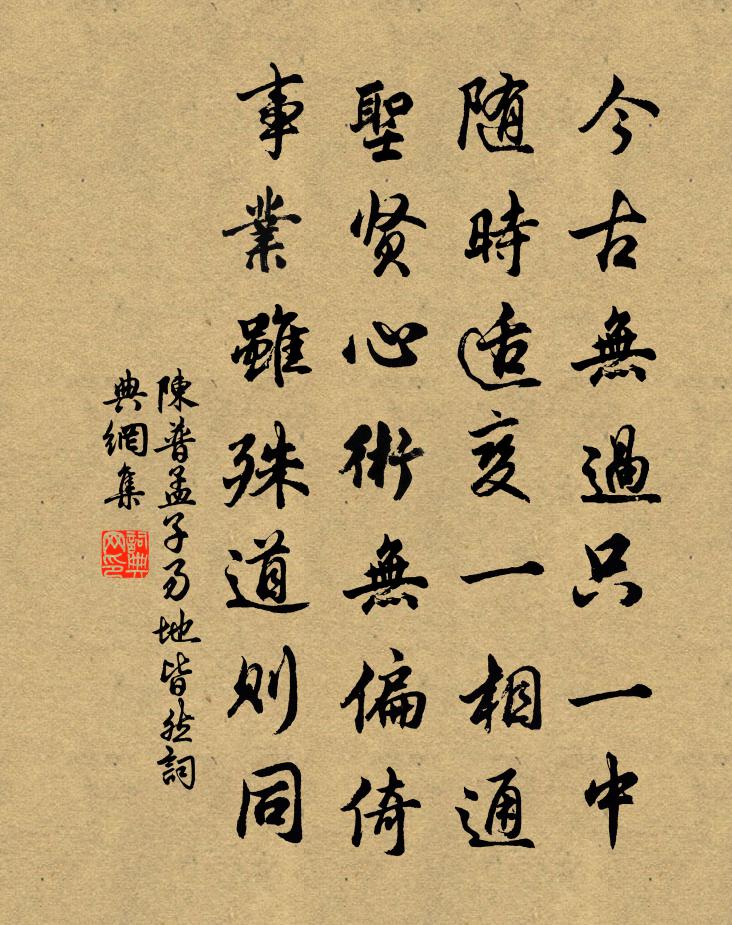 今古無過只一中
随時适变一相通
聖贤心術無偏倚
事業雖殊道則同
陳普孟子易地皆然詞
典網集
詞典
网印